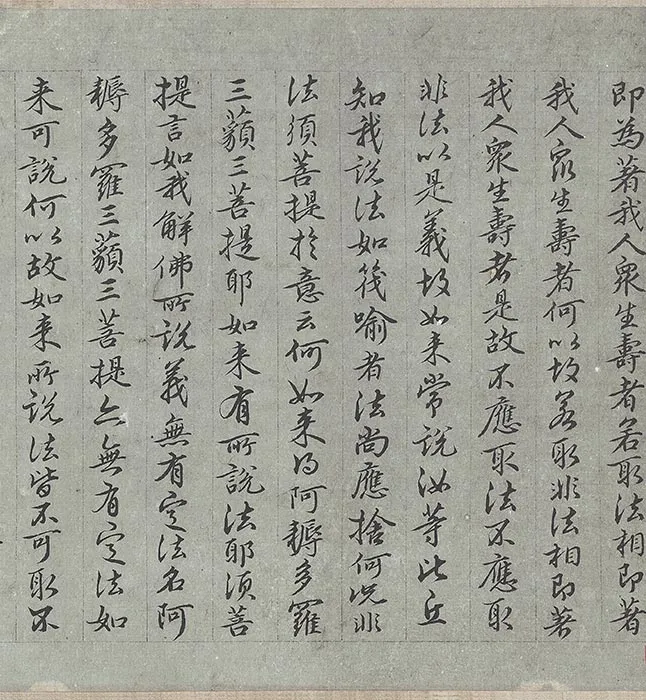 即為著我人眾生壽者若取法相即著
我人眾生壽者何以故若取非法相即著
我人眾生壽者是故不應取法不應取
非法以是義故如来常說汝等比丘
知我說法如筏喻者法尚應捨何况非
法須菩提於意云何如来得阿耨多羅
三藐三菩提耶如来有所說法耶須菩
提言如我解佛所說義無有定法名阿
耨多羅三藐三菩提亦無有定法如
来可說何以故如来所說法皆不可取不